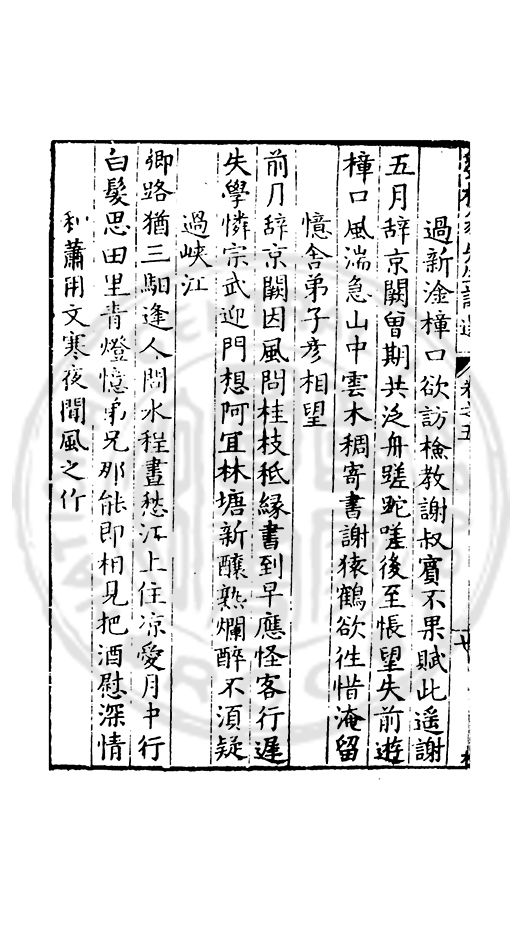 過新淦樟口欲訪檢教謝叔賓不果賦此遥謝
五月辞京闕曾期共泛舟蹉跎嗟後至悵望失前遊
樟口風湍急山中雲木稠寄書謝猿鶴欲徃惜淹留
憶舍弟子彦相望
前月辞京闕因風問桂枝秪緣書到早應怪客行遲
失學憐宗武迎門想阿宜林塘新釀熟爛醉不須疑
過峽江
鄉路猶三駅逢人問水程晝愁江上住凉愛月中行
白髮思田里青燈憶弟兄那能即相見把酒慰深情
和蕭用文寒夜聞風之作
卷之五